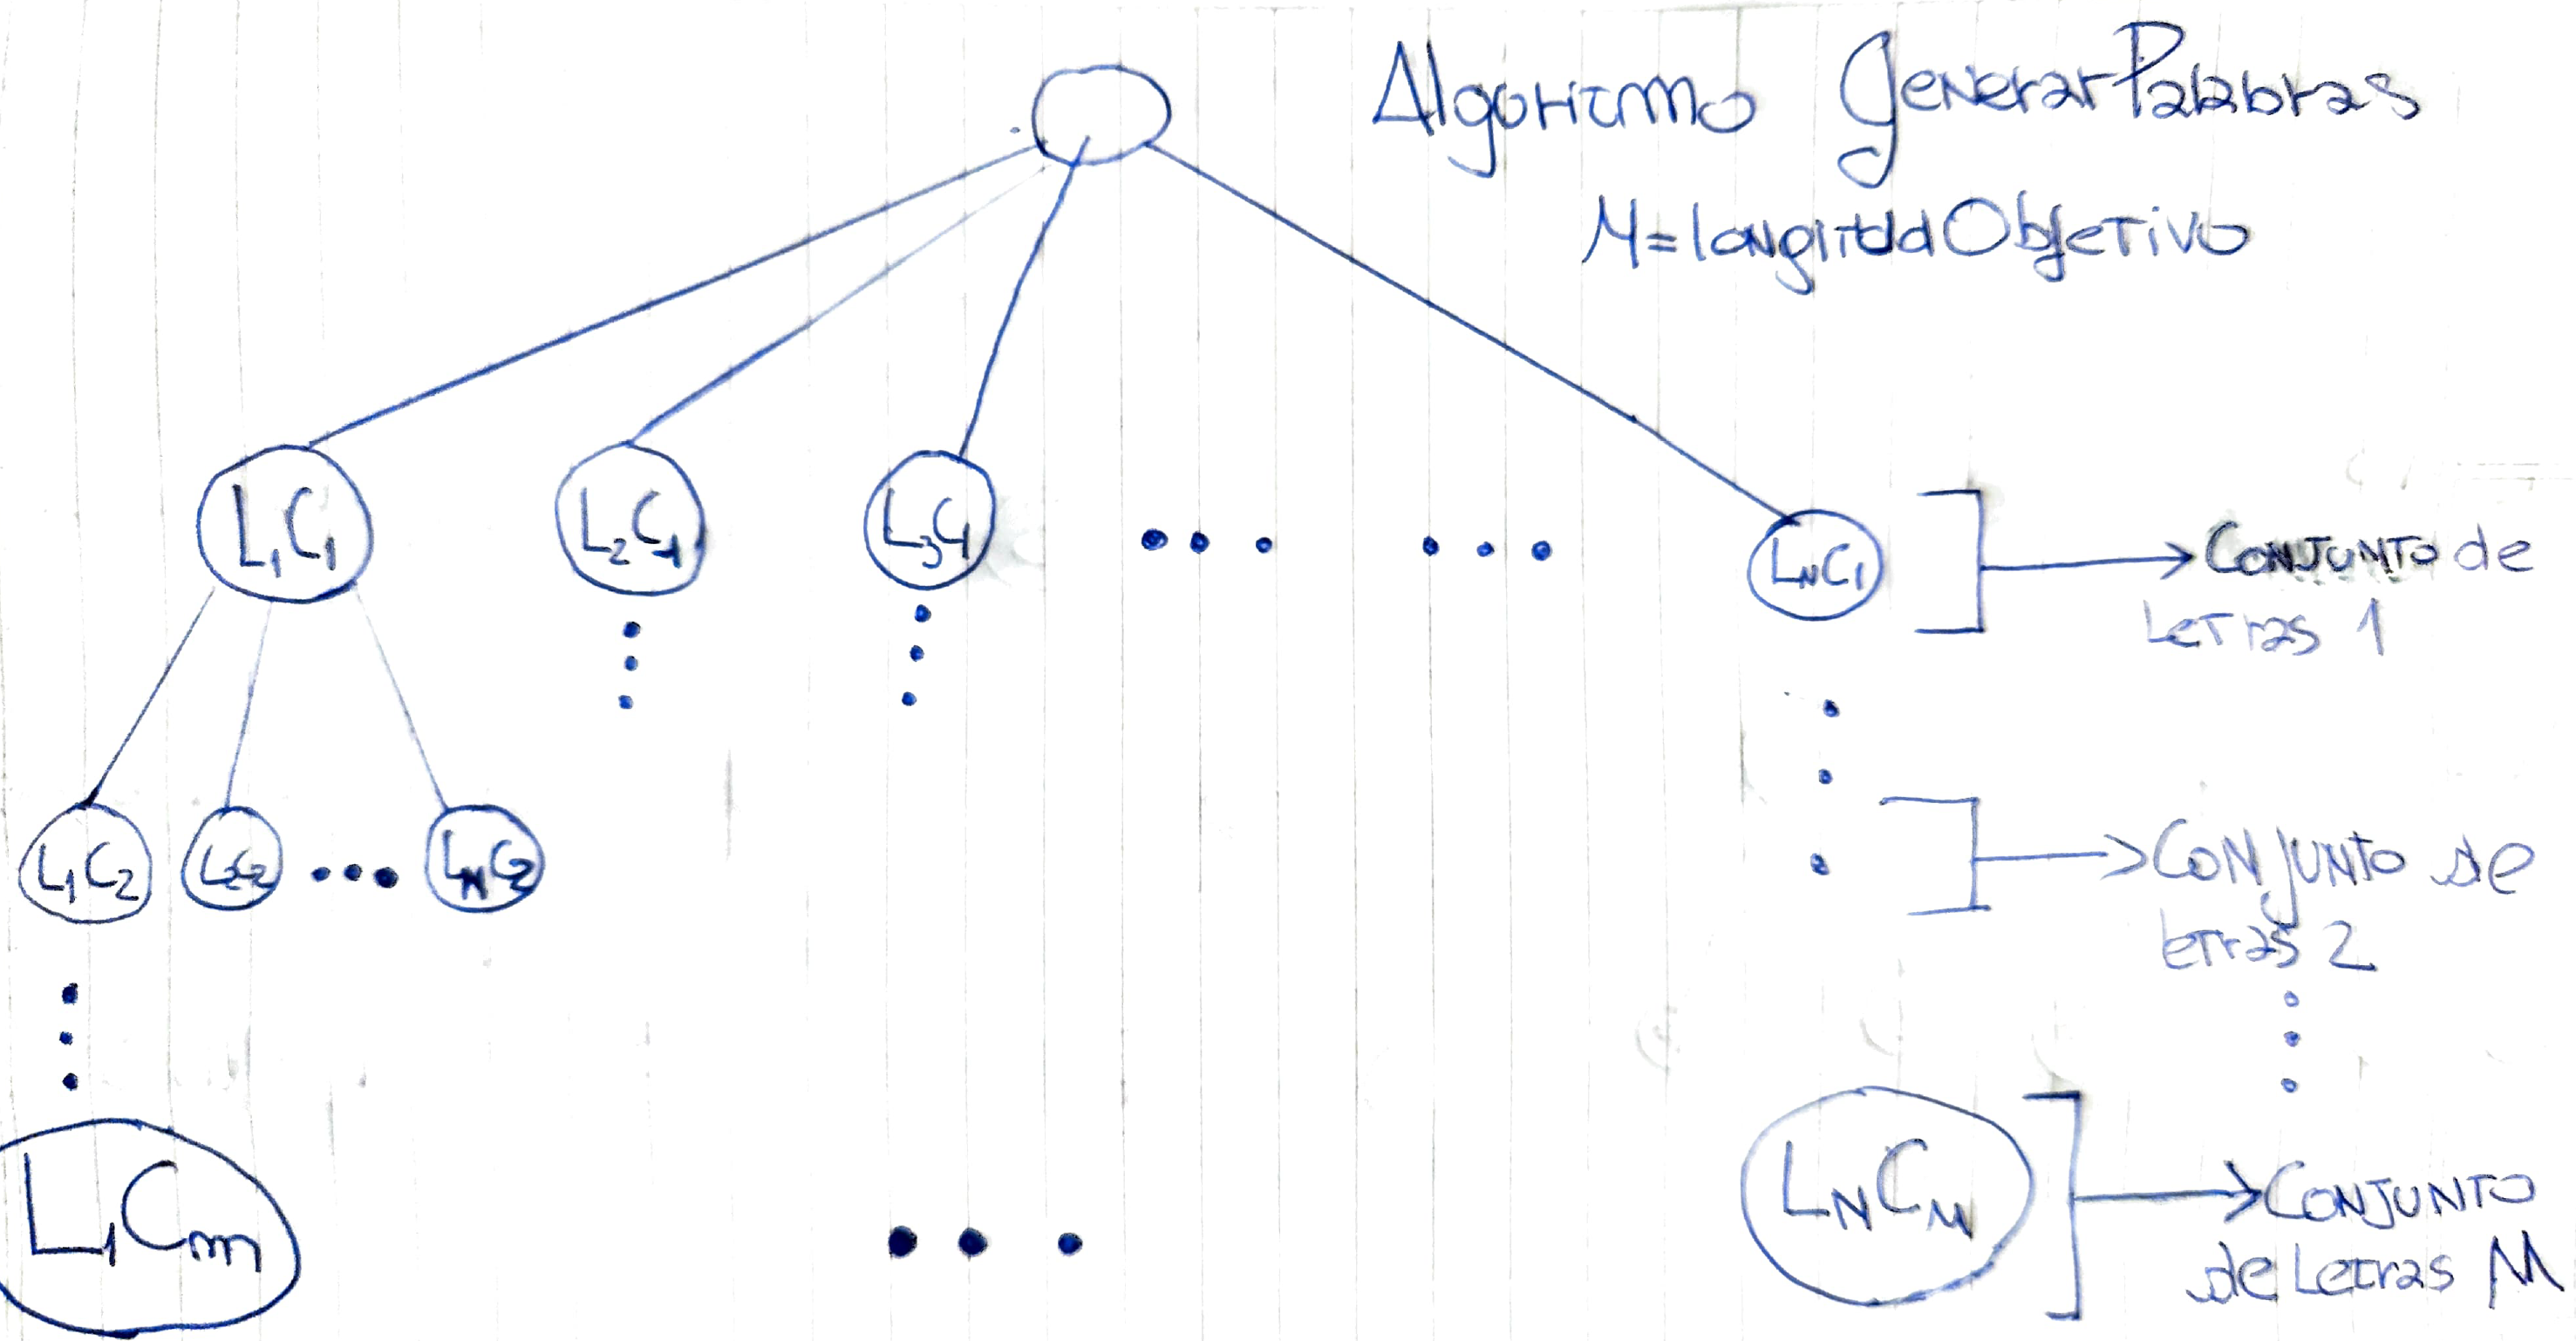 Algoritmo GenerarPalabras
M=longitudObjetivo
L1C1 L2C1 L3C1 ... ... LNC1 Conjunto de
Letras 1
L1C2 L2C2 ... LNC2 Conjunto de
letras 2
L1Cm ... LNCM Conjunto
de Letras M